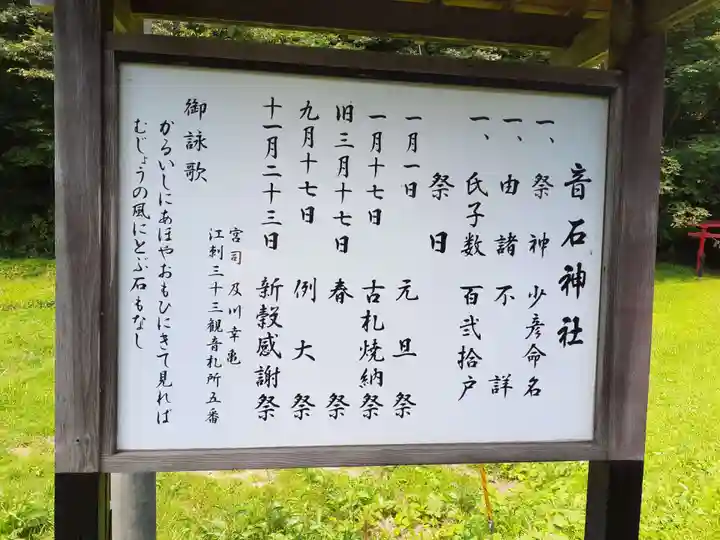 音石神社
一、祭神 少彦命名
一、由諸不詳
一、氏子数 百弐拾戸
祭日
一月一日 元旦祭
一月十七日 古札焼納祭
旧三月十七日 春祭
九月十七日 例大祭
十一月二十三日 新穀感謝祭
宮司 及川幸亀
江刺三十三観音札所五番
御詠歌
かるいしにあほやおもひにきて見れば
むじょうの風にとぶ石もなし